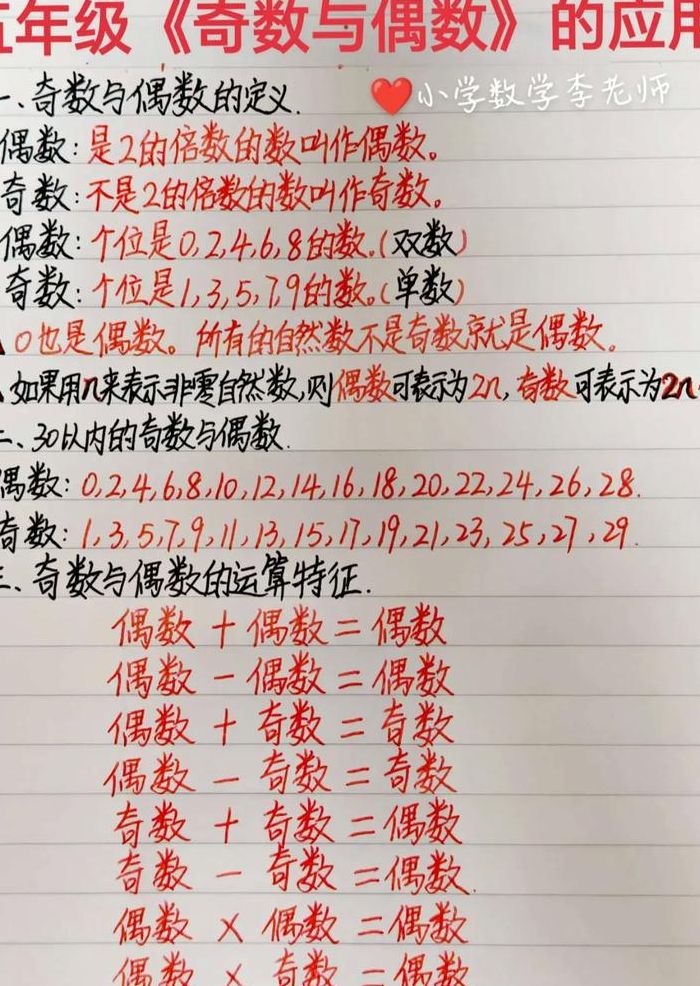 五年级《奇数与偶数》的应用
一、奇数与偶数的定义.
❤️小学数学李老师
偶数:是2的倍数的数叫作偶数。
奇数:不是2的倍数的数叫作奇数。
偶数:个位是0,2,4,6,8的数。(双数)
奇数:个位是1,3,5,7,9的数。(单数)
0也是偶数。所有的自然数不是奇数就是偶数。
如果用n来表示非零自然数,则偶数可表示为2n,奇数可表示为2n
二、30以内的奇数与偶数.
偶数:0,2,4,6,8,10,12,14,16,18,20,22,24,26,28.
奇数:1,3,5,7,9,11,13,15,17,19,21,23,25,27,29.
三、奇数与偶数的运算特征.
偶数+偶数=偶数
偶数-偶数=偶数
偶数+奇数=奇数
偶数-奇数=奇数
奇数+奇数=偶数
奇数-奇数=偶数.
偶数×偶数=偶数
偶数×奇数=偶数